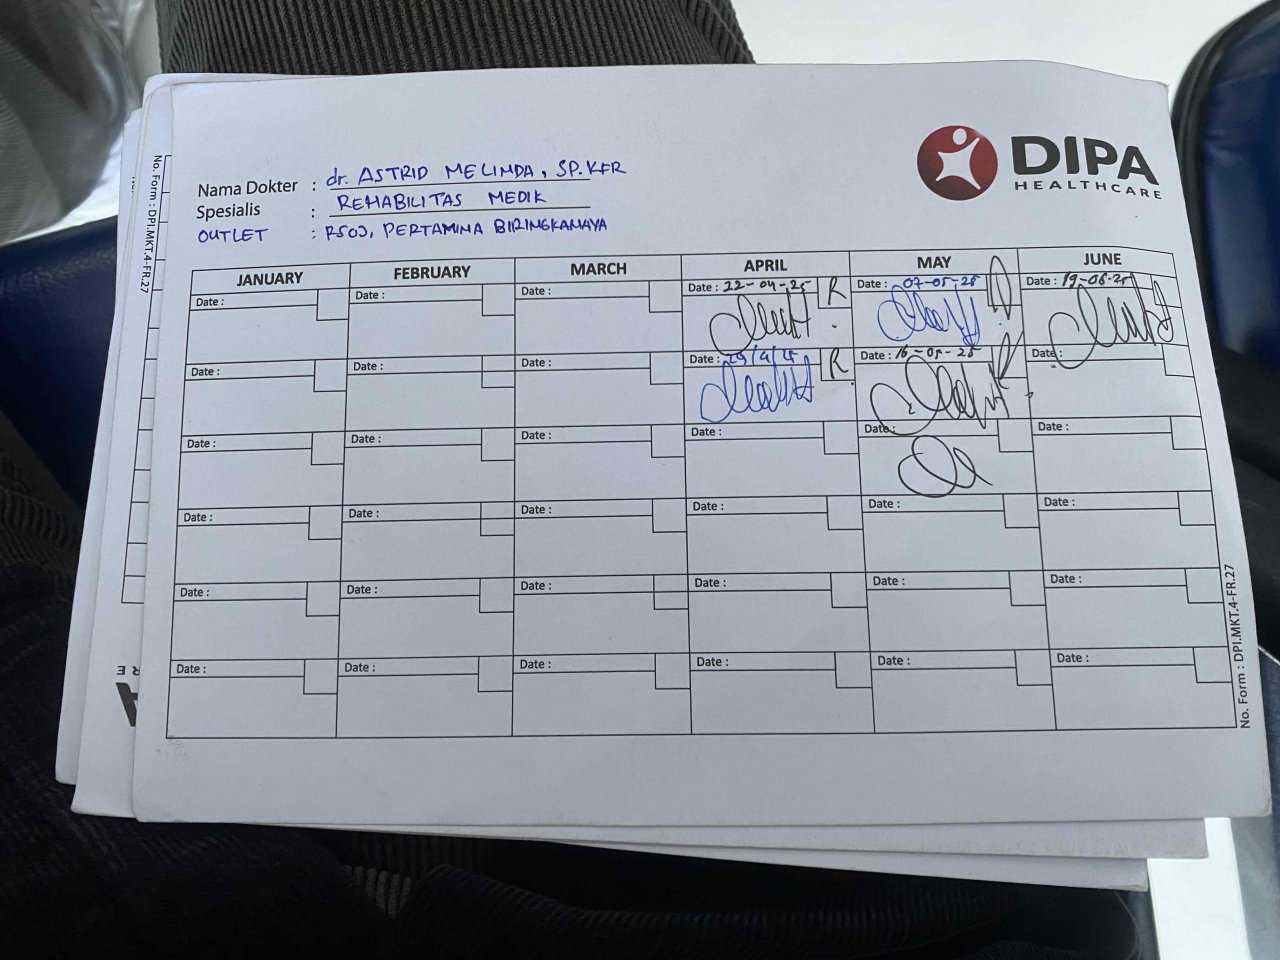 DIPA
HEALTHCARE
Nama Dokter : dr. ASTRID MELINDA, SP.KFR
Spesialis : REHABILITAS MEDIK
OUTLET : RSOJ, PERTAMINA BIRINGKANAYA
JANUARY FEBRUARY MARCH APRIL MAY JUNE
Date : Date : Date : Date : 22-04-25 R Date : 07-05-25 Date : 19-06-25
Date : Date : Date : Date : 29/4/25 R Date : 16-05-25 Date :
Date : Date : Date : Date : Date : Date :
Date : Date : Date : Date : Date : Date :
Date : Date : Date : Date : Date : Date :
Date : Date : Date : Date : Date : Date :
No. Form : DPI.MKT.4-FR.27
No. Form : DPI.MKT.4-FR.27